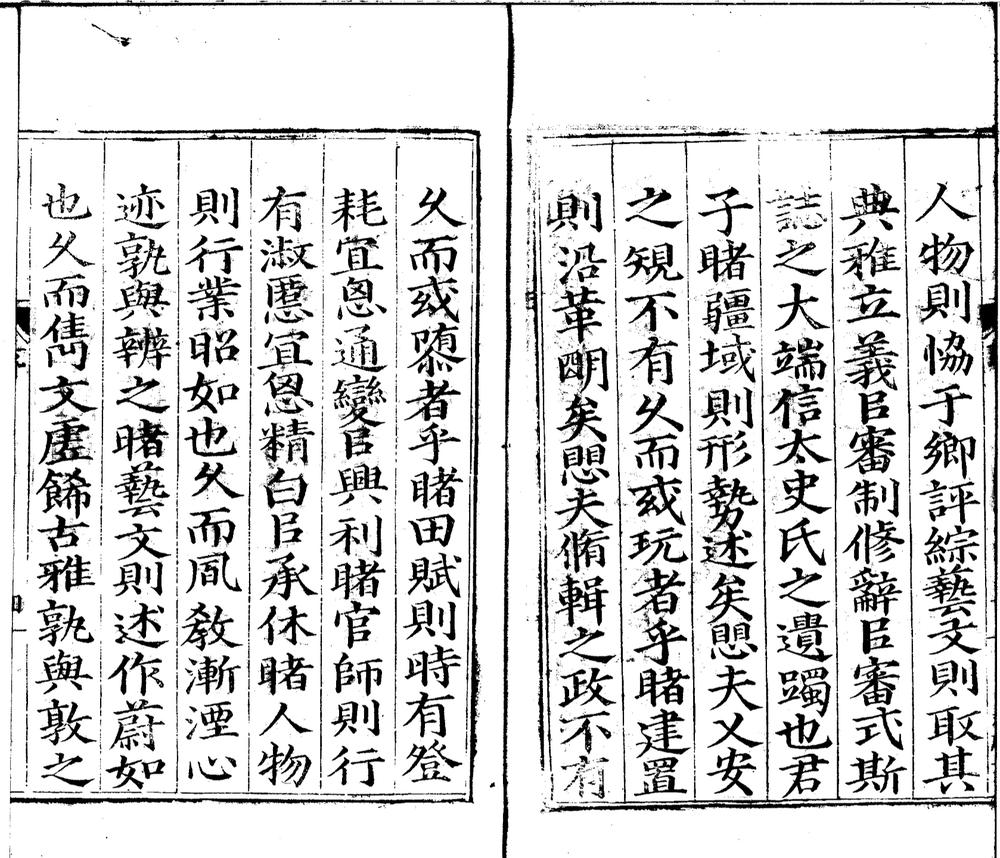 人物則恊于鄉評綜藝文則取其
典雅立義㠯審制修辭㠯審式斯
誌之大端信太史氏之遺躅也君
子睹疆域則形勢述矣愳夫乂安
之䂓不有乆而或玩者乎睹建置
則沿革眀矣愳夫脩輯之政不有
乆而或隳者乎睹田賦則時有登
耗宜恖通變㠯興利睹官師則行
有淑慝宜恖精白㠯承休睹人物
則行業昭如也乆而風教漸湮心
迹孰與辨之睹藝文則述作蔚如
也乆而雋文虛餙古雅孰與敦之